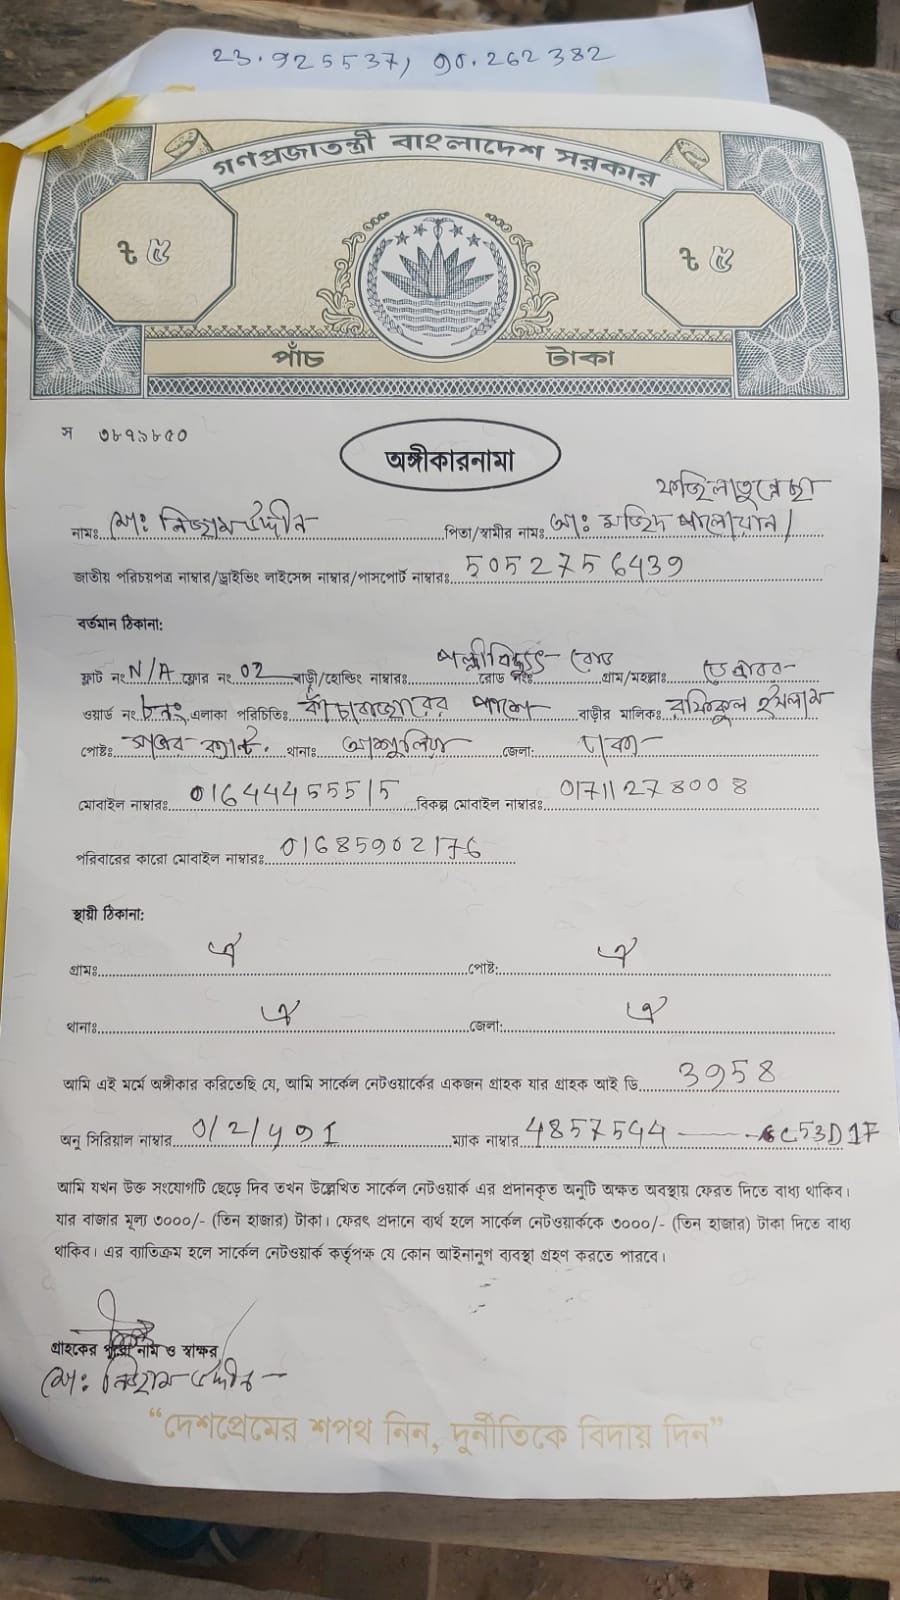 23.925537, 90.262382
গণপ্রজাতন্ত্রী বাংলাদেশ সরকার
৳ ৫ ৳ ৫
পাঁচ টাকা
স ৩৮৭৯৮৫০
অঙ্গীকারনামা
ফজিলাতুন্নেছা
নামঃ মোঃ নিজাম উদ্দীন পিতা/স্বামীর নামঃ আঃ মজিদ পালোয়ান/
জাতীয় পরিচয়পত্র নাম্বার/ড্রাইভিং লাইসেন্স নাম্বার/পাসপোর্ট নাম্বারঃ 5052756439
বর্তমান ঠিকানা:
ফ্লাট নং N/A ফ্লোর নং 02 বাড়ী/হোল্ডিং নাম্বারঃ পল্লীবিদ্যুৎ রোড রোড নংঃ গ্রাম/মহল্লাঃ
ওয়ার্ড নং ৮নং এলাকা পরিচিতিঃ কাঁচাবাজারের পাশে বাড়ীর মালিকঃ রফিকুল ইসলাম
পোষ্টঃ সাভার ক্যান্ট. থানাঃ আশুলিয়া জেলা: ঢাকা
মোবাইল নাম্বারঃ 01644455515 বিকল্প মোবাইল নাম্বারঃ 01711278008
পরিবারের কারো মোবাইল নাম্বারঃ 01685902176
স্থায়ী ঠিকানা:
গ্রামঃ ঐ পোষ্ট: ঐ
থানাঃ ঐ জেলা: ঐ
আমি এই মর্মে অঙ্গীকার করিতেছি যে, আমি সার্কেল নেটওয়ার্কের একজন গ্রাহক যার গ্রাহক আই ডি 3958
অনু সিরিয়াল নাম্বার ম্যাক নাম্বার 4857544
আমি যখন উক্ত সংযোগটি ছেড়ে দিব তখন উল্লেখিত সার্কেল নেটওয়ার্ক এর প্রদানকৃত অনুটি অক্ষত অবস্থায় ফেরত দিতে বাধ্য থাকিব।
যার বাজার মূল্য ৩০০০/- (তিন হাজার) টাকা। ফেরৎ প্রদানে ব্যর্থ হলে সার্কেল নেটওয়ার্ককে ৩০০০/- (তিন হাজার) টাকা দিতে বাধ্য
থাকিব। এর ব্যাতিক্রম হলে সার্কেল নেটওয়ার্ক কর্তৃপক্ষ যে কোন আইনানুগ ব্যবস্থা গ্রহণ করতে পারবে।
গ্রাহকের পুরো নাম ও স্বাক্ষর
মোঃ নিজাম উদ্দীন
“দেশপ্রেমের শপথ নিন, দুর্নীতিকে বিদায় দিন”